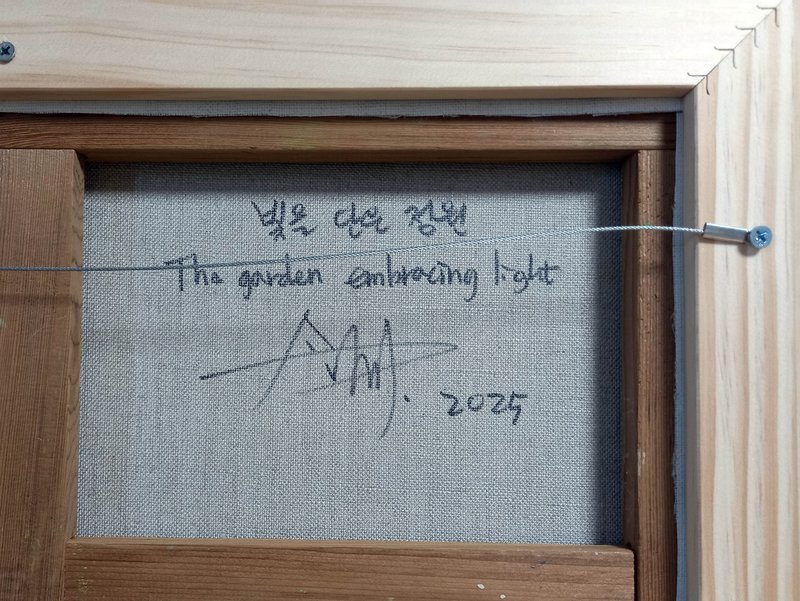 빛을 담은 정원
The garden embracing light
2025